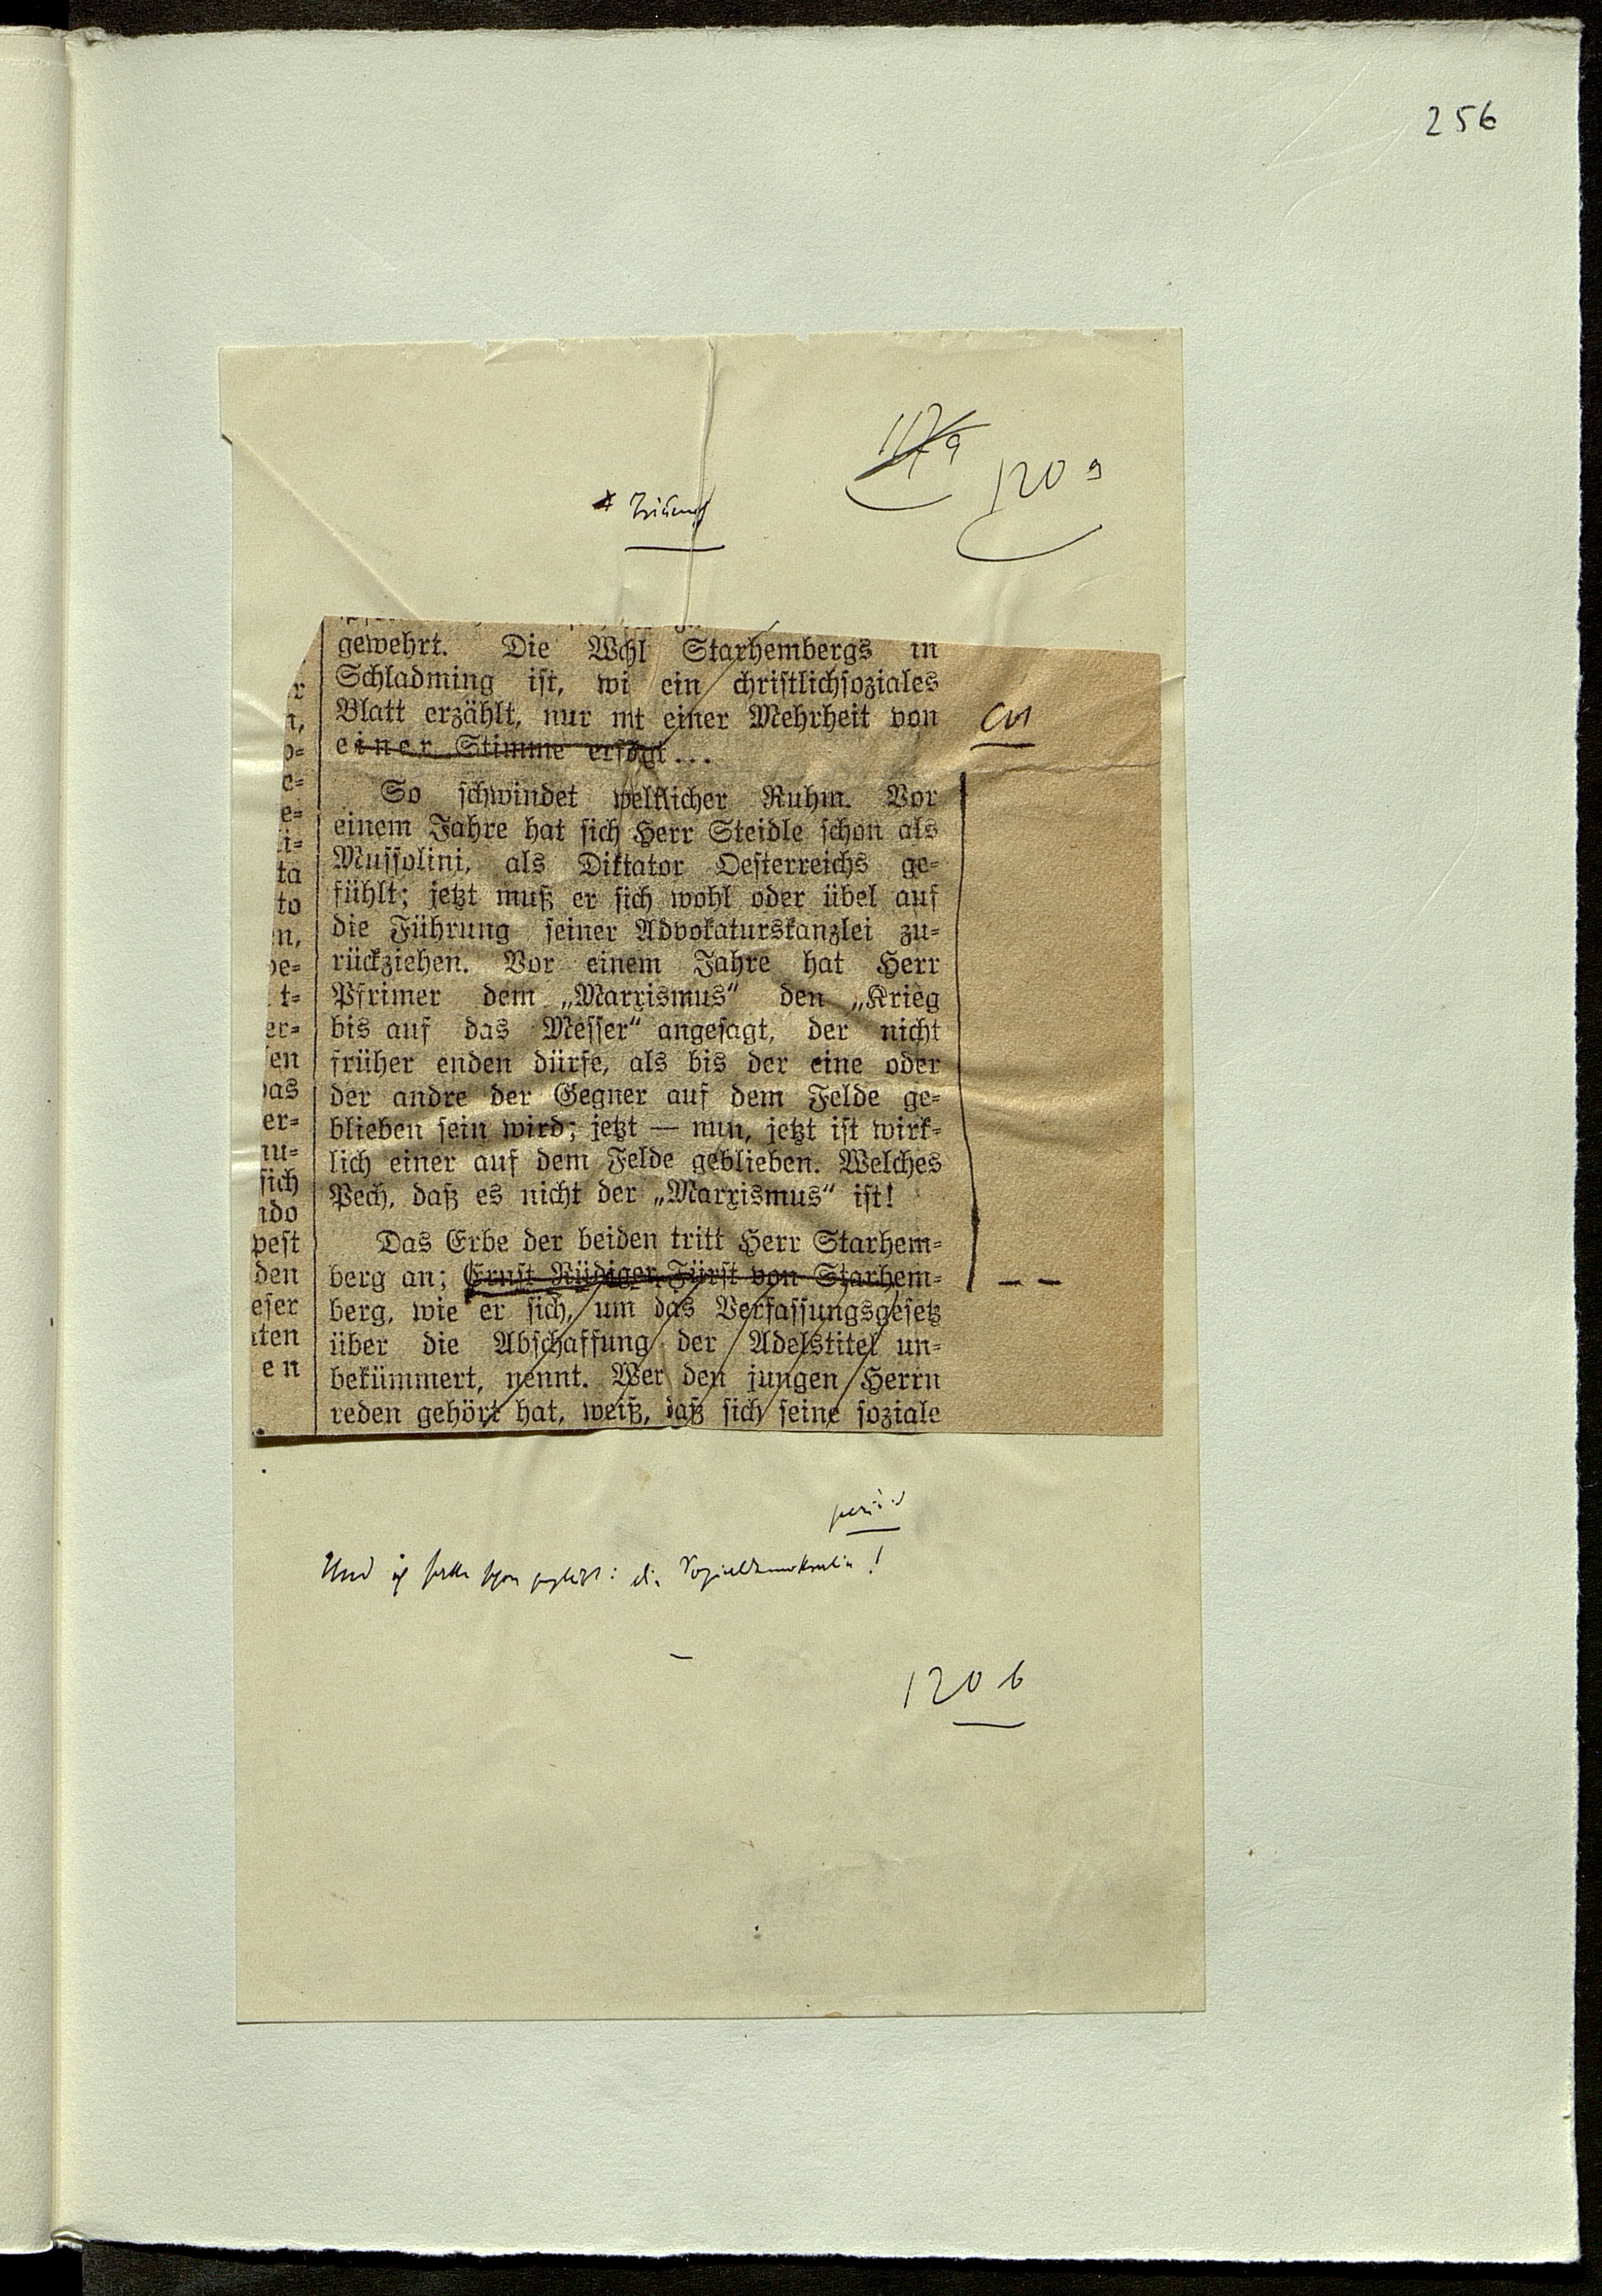 256
117a
120 a
Triumph
gewehrt. Die Wahl Starhembergs in
Schladming ist, wi ein christlichsoziales
Blatt erzählt, nur mt einer Mehrheit von
einer Stimme erfolgt...
cn
So schwindet weltlicher Ruhm. Vor
einem Jahre hat sich Herr Steidle schon als
Mussolini, als Diktator Oesterreichs ge=
fühlt; jetzt muß er sich wohl oder übel auf
die Führung seiner Advokaturskanzlei zu=
rückziehen. Vor einem Jahre hat Herr
Pfrimer dem „Marxismus“ den „Krieg
bis auf das Messer“ angesagt, der nicht
früher enden dürfe, als bis der eine oder
der andre der Gegner auf dem Felde ge=
blieben sein wird; jetzt — nun, jetzt ist wirk=
lich einer auf dem Felde geblieben. Welches
Pech, daß es nicht der „Marxismus“ ist!
Das Erbe der beiden tritt Herr Starhem=
berg an; Ernst Rüdiger Fürst von Starhem=
berg, wie er sich, um das Verfassungsgesetz
über die Abschaffung der Adelstitel un=
bekümmert, nennt. Wer den jungen Herrn
reden gehört hat, weiß, daß sich seine soziale
r
n,
o=
e=
e=
i=
ta
to
n,
be=
t=
er=
en
as
er=
nu=
sich
ido
pest
den
eser
ten
en
Und ich hatte schon geglaubt: die Sozialdemokratie!
120 b